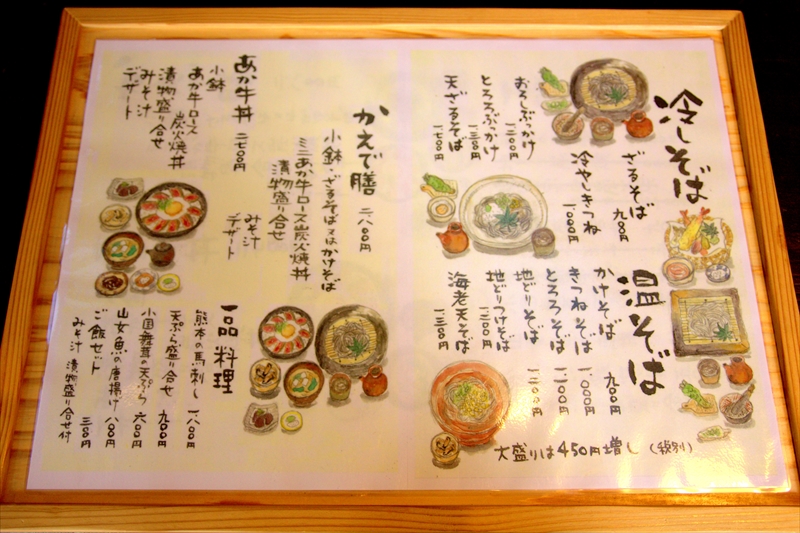 冷しそば
ざるそば 九〇〇円
冷やしきつね 一、〇〇〇円
おろしぶっかけ 一、二〇〇円
とろろぶっかけ
天ざるそば 一、七〇〇円
温そば
かけそば 九〇〇円
きつねそば 一、〇〇〇円
とろろそば 一、一〇〇円
地どりそば
地どりつけそば
海老天そば 一、三〇〇円
大盛りは450円増し(税別)
かえで膳 二、八〇〇円
小鉢・ざるそば又はかけそば
ミニあか牛ロース炭火焼丼
漬物盛り合せ
みそ汁
デザート
あか牛丼 二、七〇〇円
小鉢
あか牛ロース炭火焼丼
漬物盛り合せ
みそ汁
デザート
一品料理
熊本の馬刺し 一、八〇〇円
天ぷら盛り合せ 九〇〇円
小国舞茸の天ぷら 六〇〇円
山女魚の唐揚げ 八〇〇円
ご飯セット
みそ汁 漬物盛り合せ付